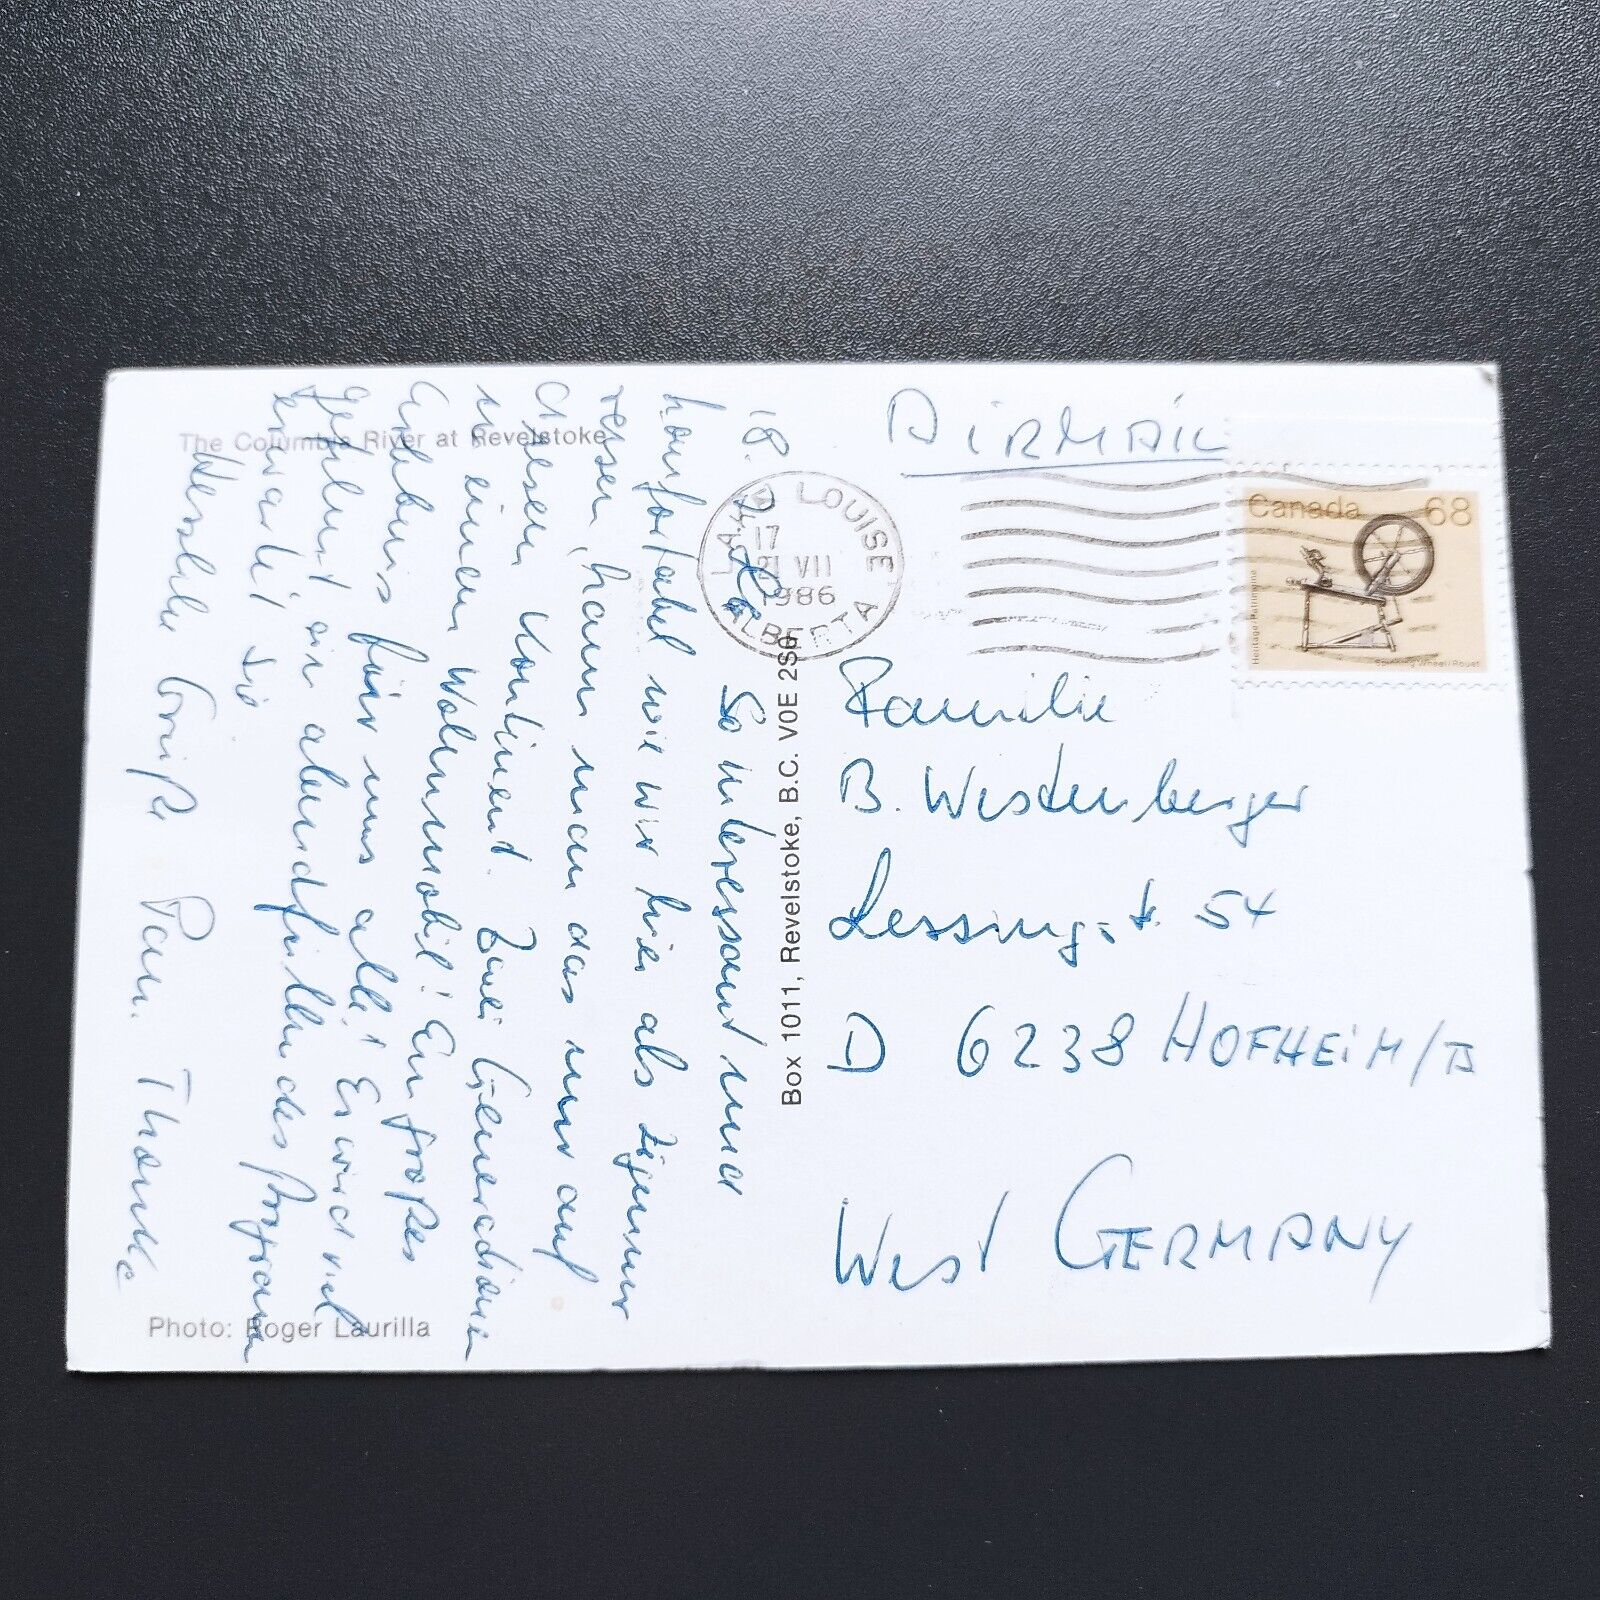 The Columbia River at Revelstoke
18. 7. 86
So interessant und
komfortabel wie wir hier als Zigeuner
reisen, kann man das nur auf
diesem Kontinent. Zwei Generationen
in einem Wohnmobil! Ein großes
Erlebnis für uns alle! Es wird viel
gefilmt, ein abendfüllendes Programm
erwartet Sie
Herzliche Grüße Fam.
Photo: Roger Laurilla
Box 1011, Revelstoke, B.C. V0E 2S0
AIRMAIL
LAKE LOUISE
17
21 VII
1986
ALBERTA
Canada 68
Heritage Patrimoine
Spinning Wheel/Rouet
Familie
B. Westenberger
Lessingstr. 54
D 6238 HOFHEIM/TS
WEST GERMANY